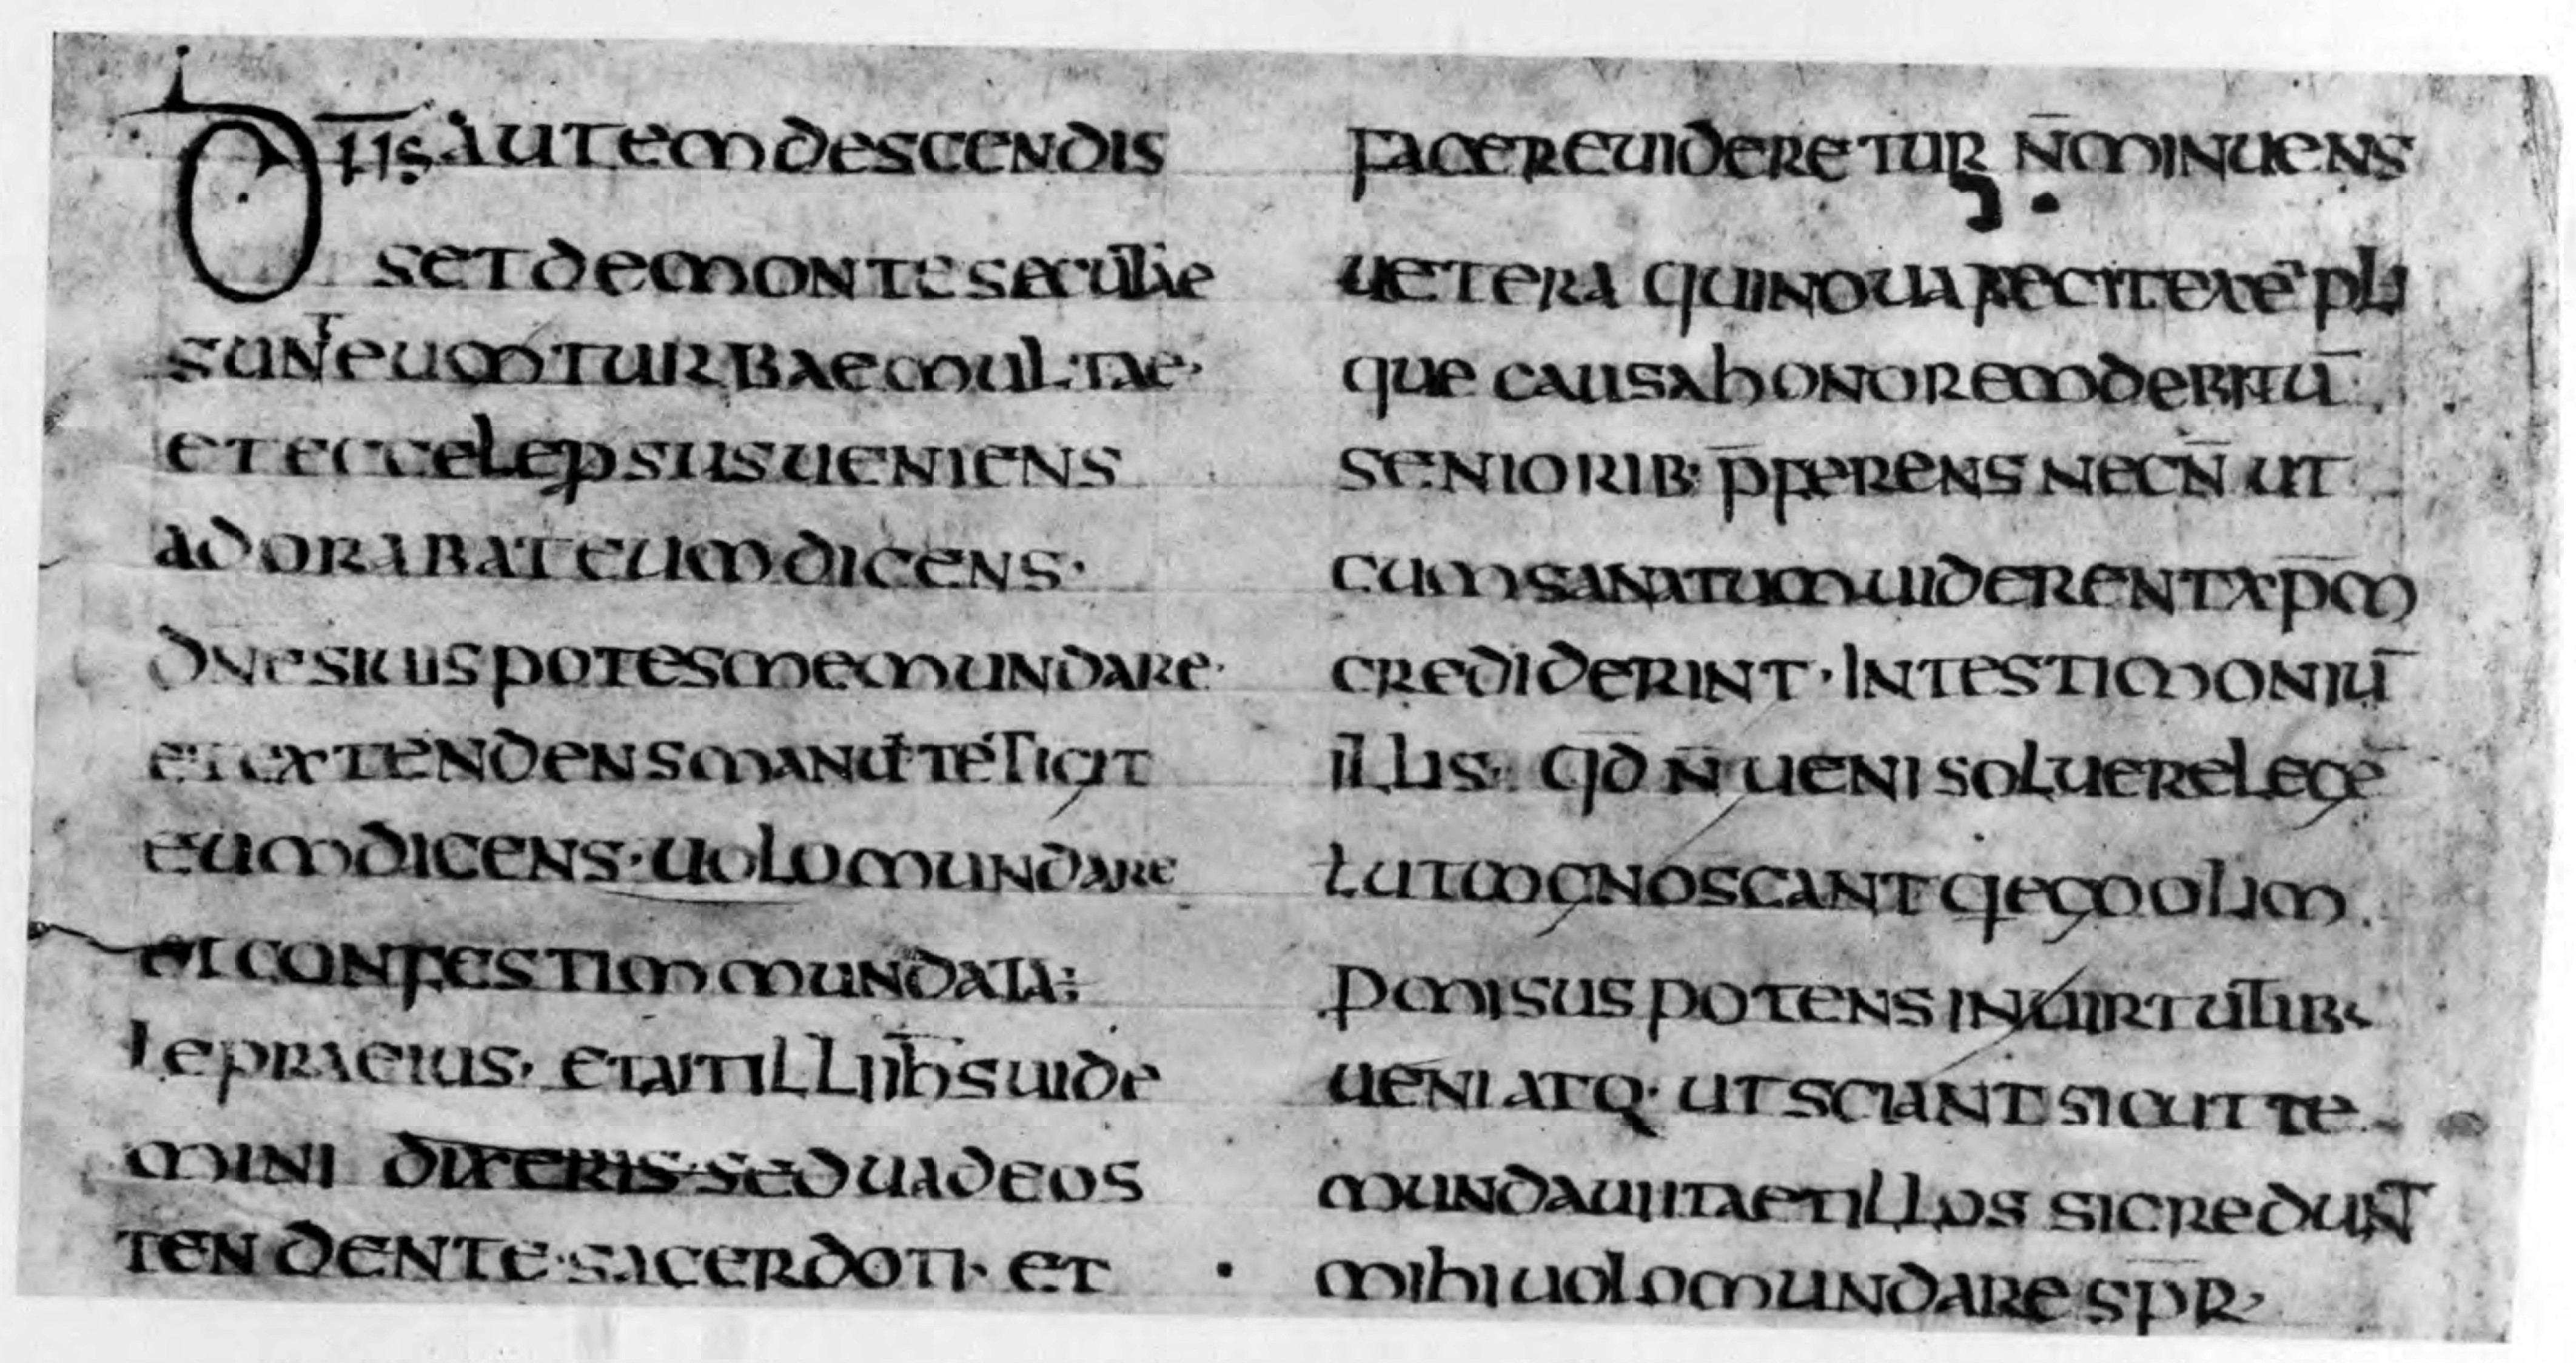 Dn̄s autem descendis
set de monte secutae
sunt eum turbae multae·
et ecce lepsus ueniens
adorabat eum dicens·
dne si uis potes me mundare·
et extendens manū tetigit
eum dicens· uolo mundare
et confestim mundata;
lepra eius· et ait illi ihs uide
mini dixeris sed uade os
tendente· sacerdoti· et
facere uideretur n̄ minuens
uetera qui noua fecit exē pli
que causa honorem debitū
seniorib· p̄ferens nec n̄ ut
cum sanatum uiderent xp̄m
crediderint· in testimoniū
illis· qd̄ n̄ ueni soluere legē
t ut mgnoscant q ego olim
pmisus potens in uirtutib·
ueni atq· ut sciant sicut te
mundaui ita et illos si credunt
mihi uolo mundare sp̄r·